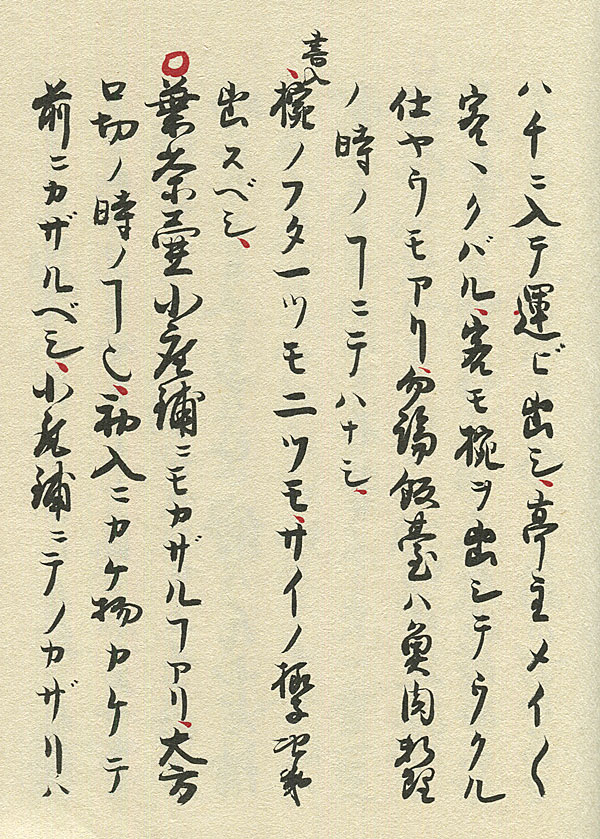 ハチニ入テ運ビ出シ、亭主メイ〱
客ヘクバル、客モ椀ヲ出シテウクル
仕ヤウモアリ、勿論飯臺ハ魚肉料理
ノ時ノヿニテハナシ、
書入
椀ノフタ一ツモ二ツモ、サイノ様子次第
出スベシ、
○葉茶壷小座鋪ニモカザルヿアリ、大方
口切ノ時ノヿ也、初入ニカケ物カケテ
前ニカザルベシ、小座鋪ニテノカザリハ